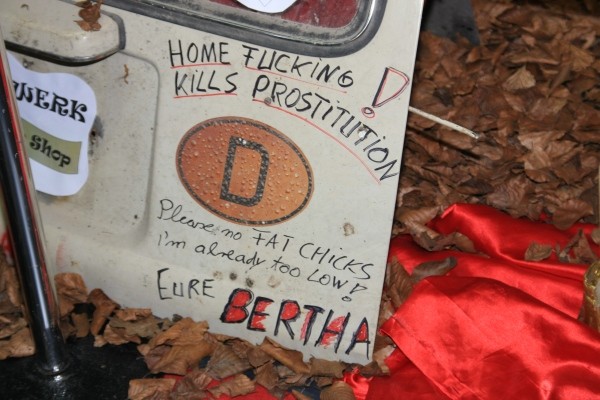 HOME FUCKING
KILLS PROSTITUTION!
WERK
shop
D
Please no FAT CHICKS
i'm already too LOW!
EURE BERTHA